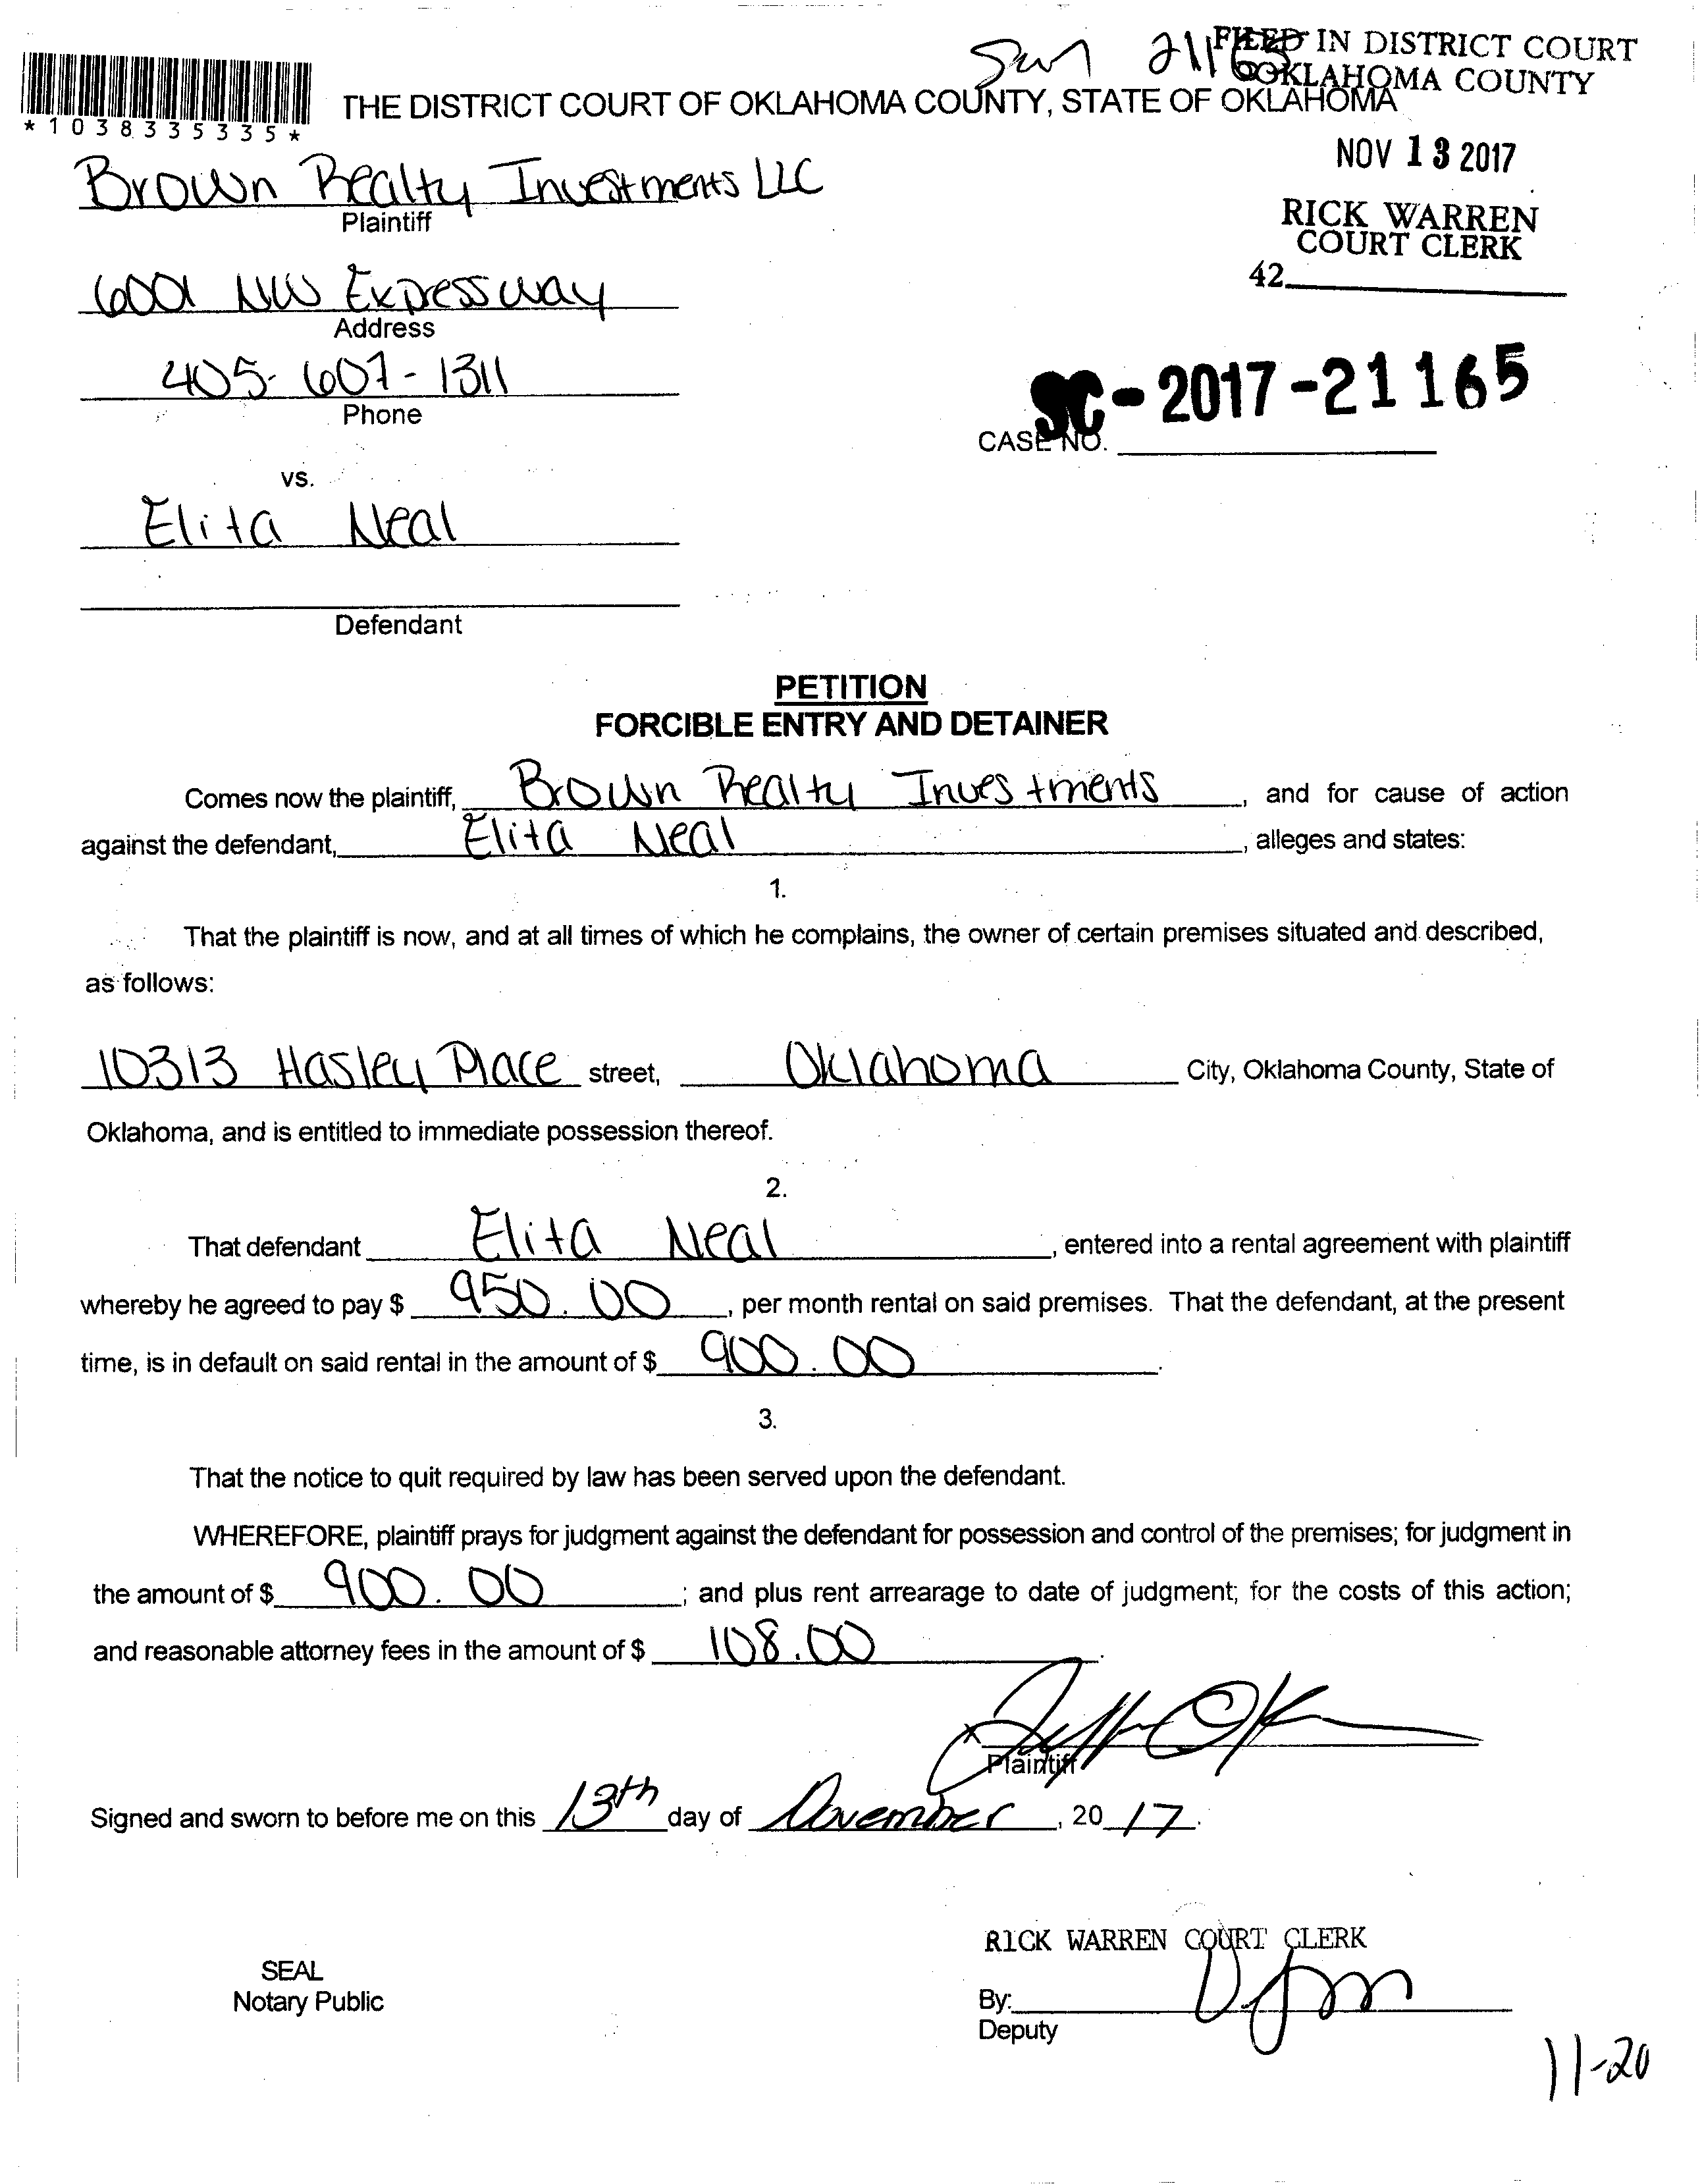 21165
FILED IN DISTRICT COURT
OKLAHOMA COUNTY
*1038335335*
THE DISTRICT COURT OF OKLAHOMA COUNTY, STATE OF OKLAHOMA
NOV 13 2017
Brown Realty Investments LLC
Plaintiff
RICK WARREN
COURT CLERK
42
6001 NW Expressway
Address
405-607-1311
Phone
SC-2017-21165
CASE NO.
vs.
Elita Neal
Defendant
PETITION
FORCIBLE ENTRY AND DETAINER
Comes now the plaintiff, Brown Realty Investments, and for cause of action
against the defendant, Elita Neal, alleges and states:
1.
That the plaintiff is now, and at all times of which he complains, the owner of certain premises situated and described,
as follows:
10313 Hasley Place street, Oklahoma City, Oklahoma County, State of
Oklahoma, and is entitled to immediate possession thereof.
2.
That defendant Elita Neal, entered into a rental agreement with plaintiff
whereby he agreed to pay $ 950.00, per month rental on said premises. That the defendant, at the present
time, is in default on said rental in the amount of $ 900.00.
3.
That the notice to quit required by law has been served upon the defendant.
WHEREFORE, plaintiff prays for judgment against the defendant for possession and control of the premises; for judgment in
the amount of $ 900.00; and plus rent arrearage to date of judgment; for the costs of this action;
and reasonable attorney fees in the amount of $ 108.00.
X
Plaintiff
Signed and sworn to before me on this 13th day of November, 20 17.
RICK WARREN COURT CLERK
SEAL
Notary Public
By:
Deputy
11-20